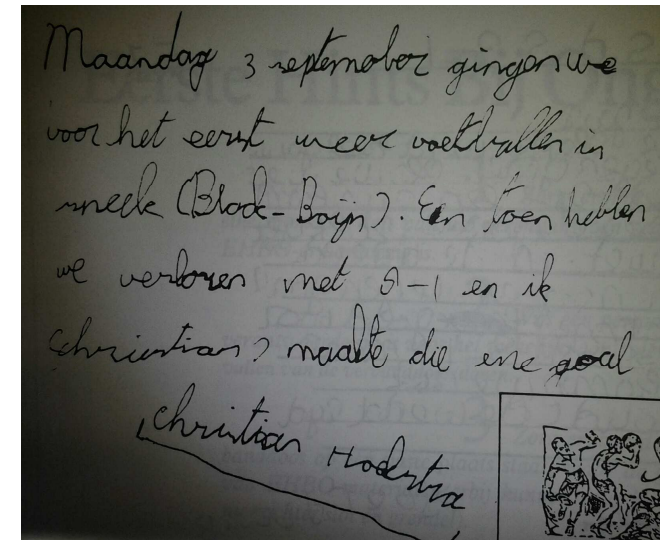 Maandag 3 september gingen we
voor het eerst weer voetballen in
sneek (Black-Boijs). En toen hebben
we verloren met 5-1 en ik
(christian) maakte die ene goal
christian Hoekstra